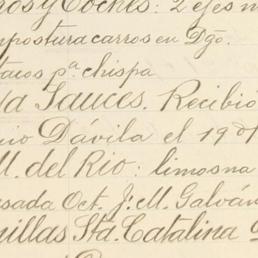 os y Coches: 2 ejes n
mpostura carros en Dgo.
tacos pª. chispa
Sauces. Recibió
cio Dávila el 19
M. del Rio: limosna
esada Oct. J. M. Galván
nillas Sta. Catalina